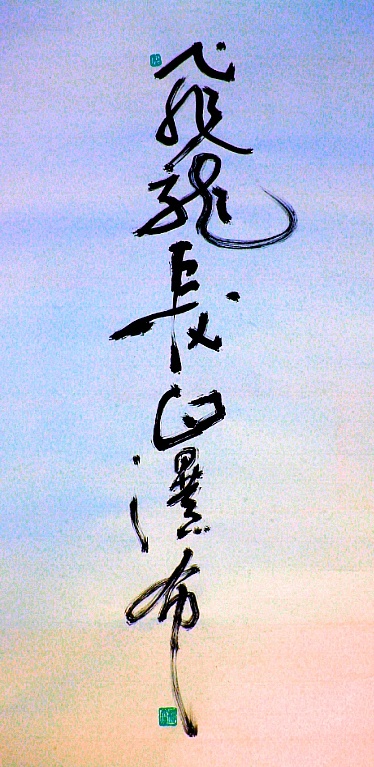 飛龍長白瀑布